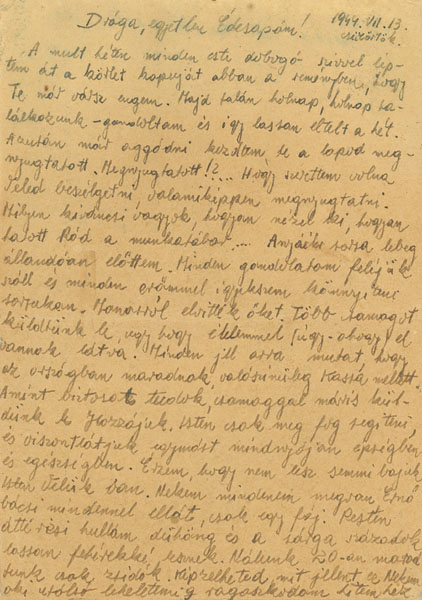 Drága, egyetlen Édesapám! 1944. VII. 13.
csütörtök.
A mult héten minden este dobogó szivvel lép-
tem át a körlet kapuját abban a reményben, hogy
Te már vársz engem. Majd talán holnap, holnap ta-
lálkozunk - gondoltam és így lassan eltelt a hét.
Azután már aggódni kezdtem, de a lapod meg-
nyugtatott. Megnyugtatott!? ... Hogy szerettem volna
Veled beszélgetni, valamiképpen megnyugtatni.
Milyen kiváncsi vagyok, hogyan nézel ki, hogyan
hatott Rád a munkatábor .... Anyáék sorsa lebeg
állandóan előttem. Minden gondolatom feléjük
száll és minden erőmmel igyekszem könnyíteni
sorsukon. Monorról elvitték őket. Több csomagot
küldtünk le, úgy hogy élelemmel úgy-ahogy el
vannak látva. Minden jel arra mutat, hogy
az országban maradnak, valószinűleg Kassa mellett.
Amint biztosat tudok, csomaggal máris kül-
dünk k Hozzájuk. Isten csak meg fog segíteni,
és viszontlátjuk egymást mindnyájan épségben
és egészségben. Érzem, hogy nem lesz semmi bajuk
Isten Velük van. Nekem mindenem megvan Ernő
bácsi mindennel ellát, csak egy fáj. Pesten
áttérési hullám dühöng és a sárga századok
lassan fehérekké lesznek. Nálunk 20-an marad-
tunk csak zsidók. Képzelheted mit jelent ez Nekem,
aki utolsó leheletemig ragaszkodom hitemhez